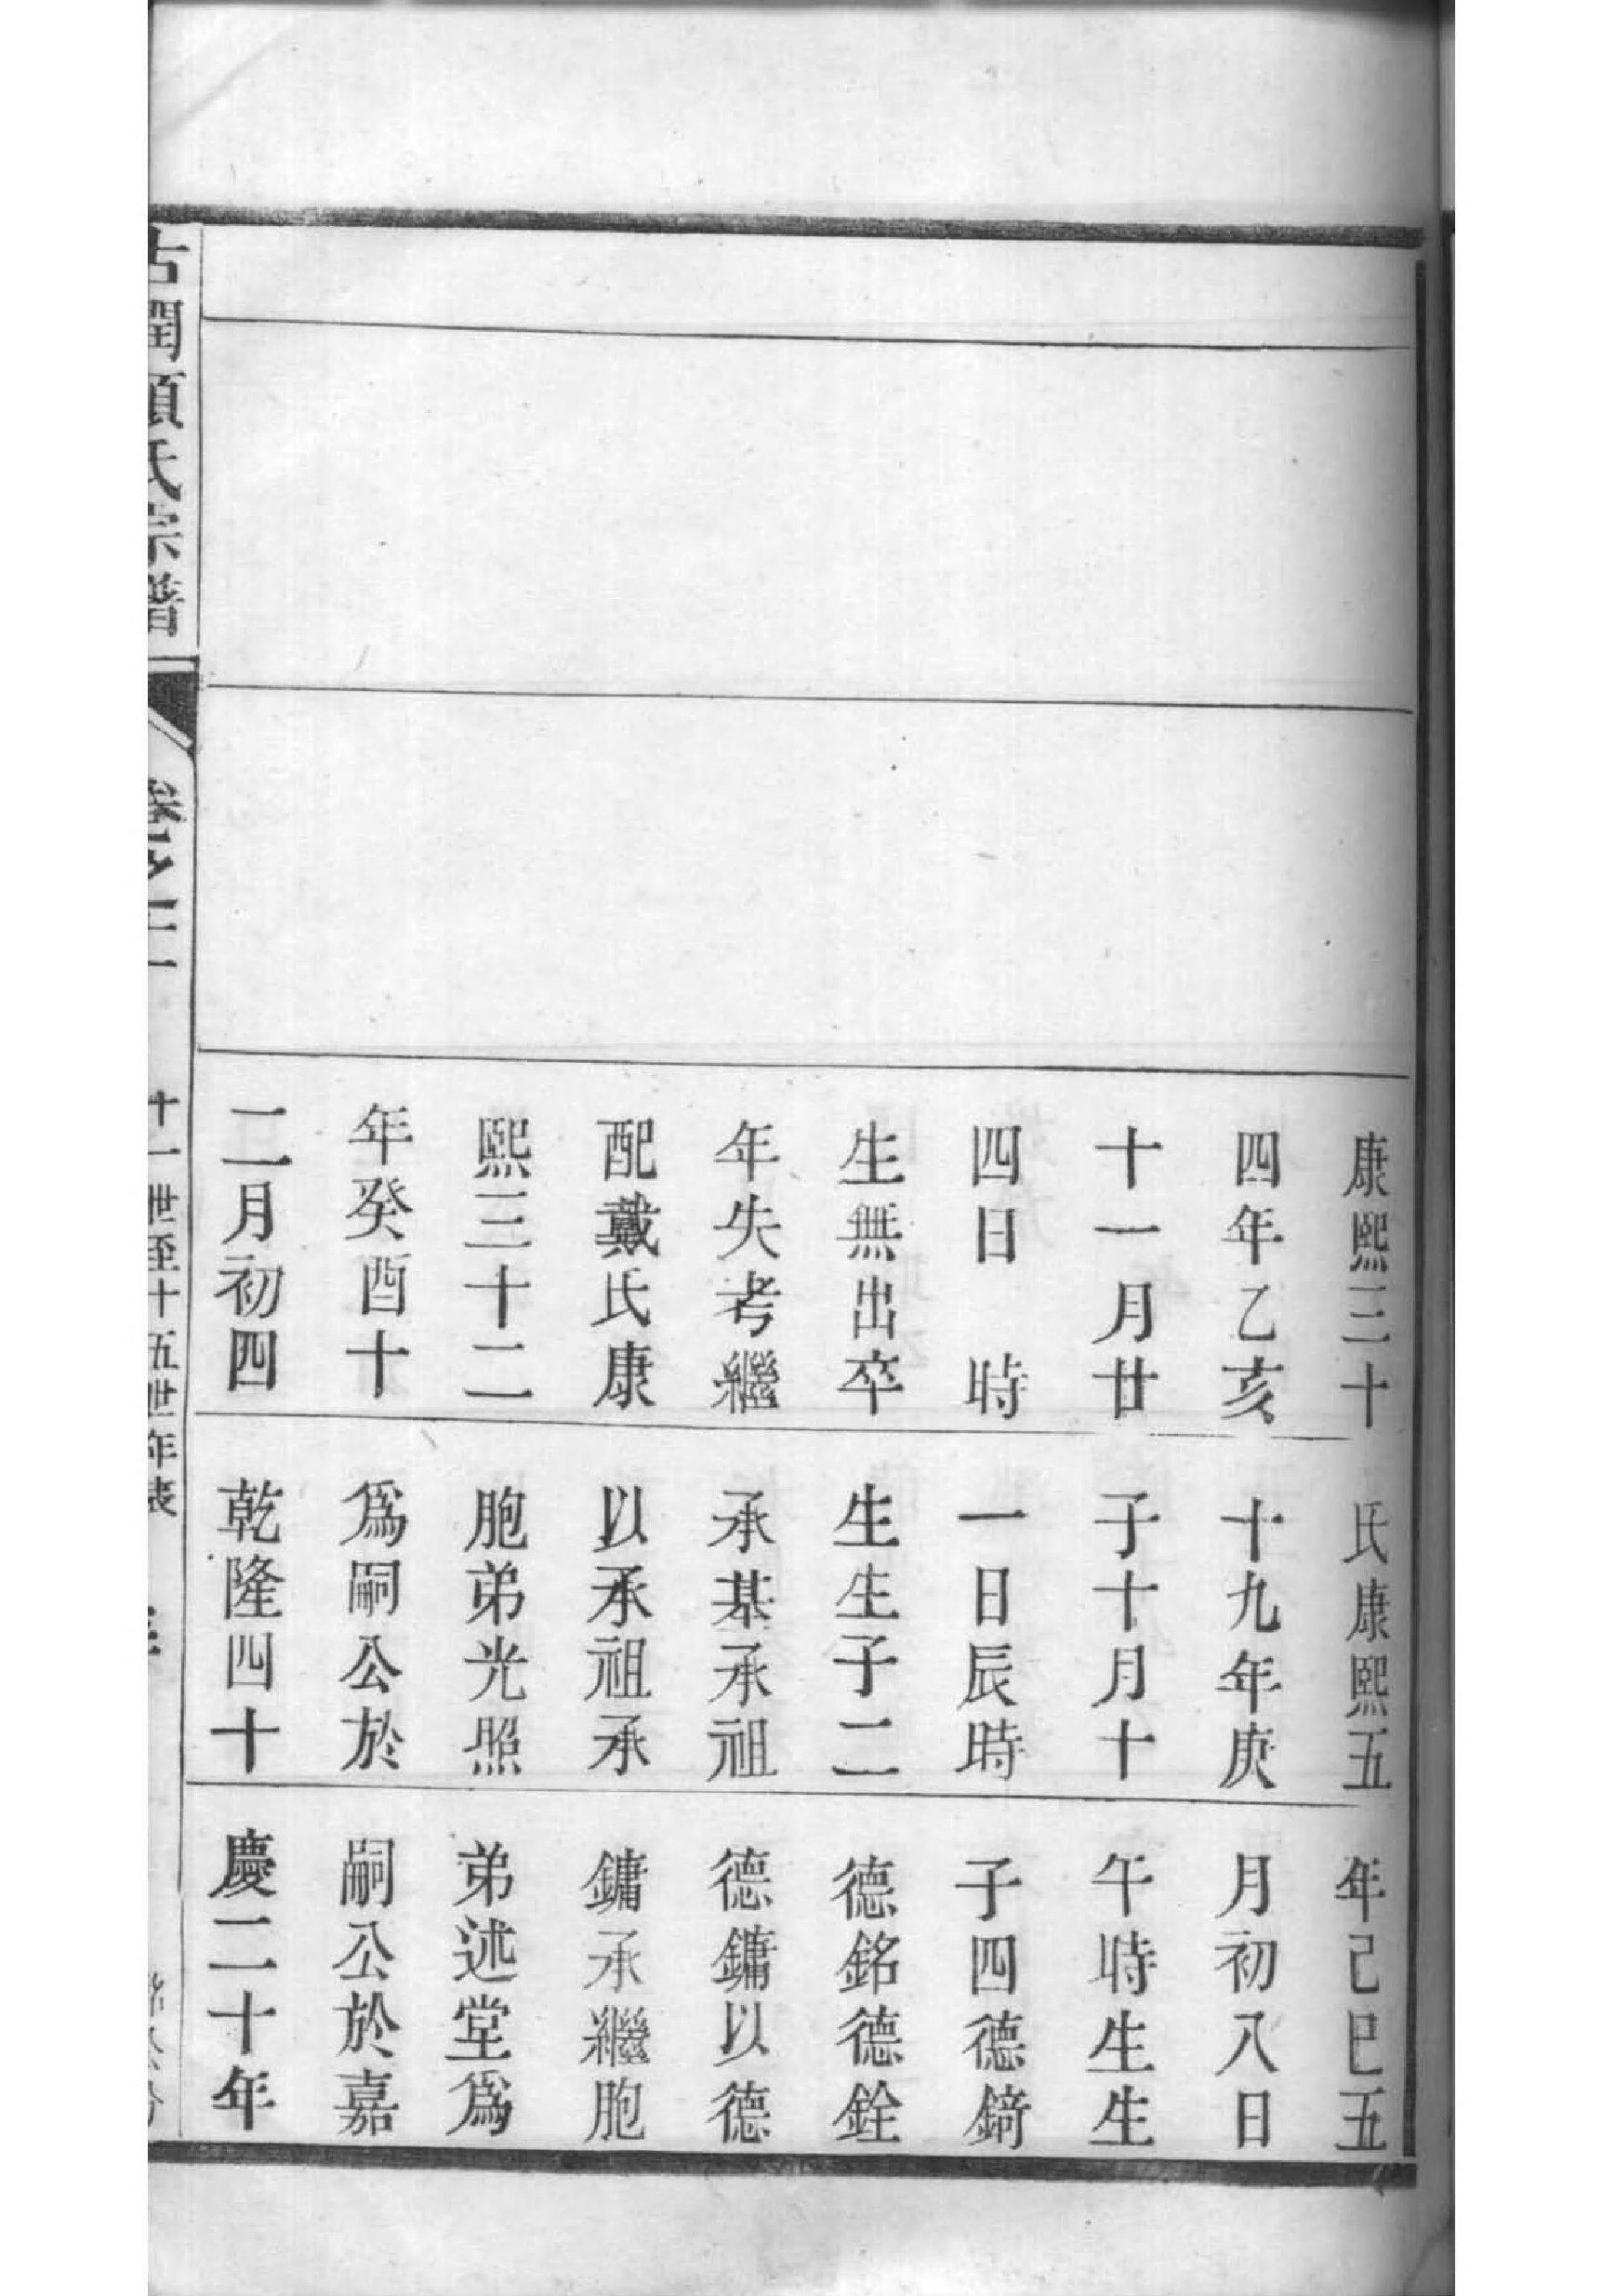 康熙三十
四年乙亥
十一月廿
四日　時
生無出卒
年失考繼
配戴氏康
熙三十二
年癸酉十
二月初四
氏康熙五
十九年庚
子十月十
一日辰時
生生子二
承基承祖
以承祖承
胞弟光照
爲嗣公於
乾隆四十
年己巳五
月初八日
午時生生
子四德錡
德銘德銓
德鏞以德
鏞承繼胞
弟述堂爲
嗣公於嘉
慶二十年
古潤頭氏宗譜
卷之二
十一世至十五世年表